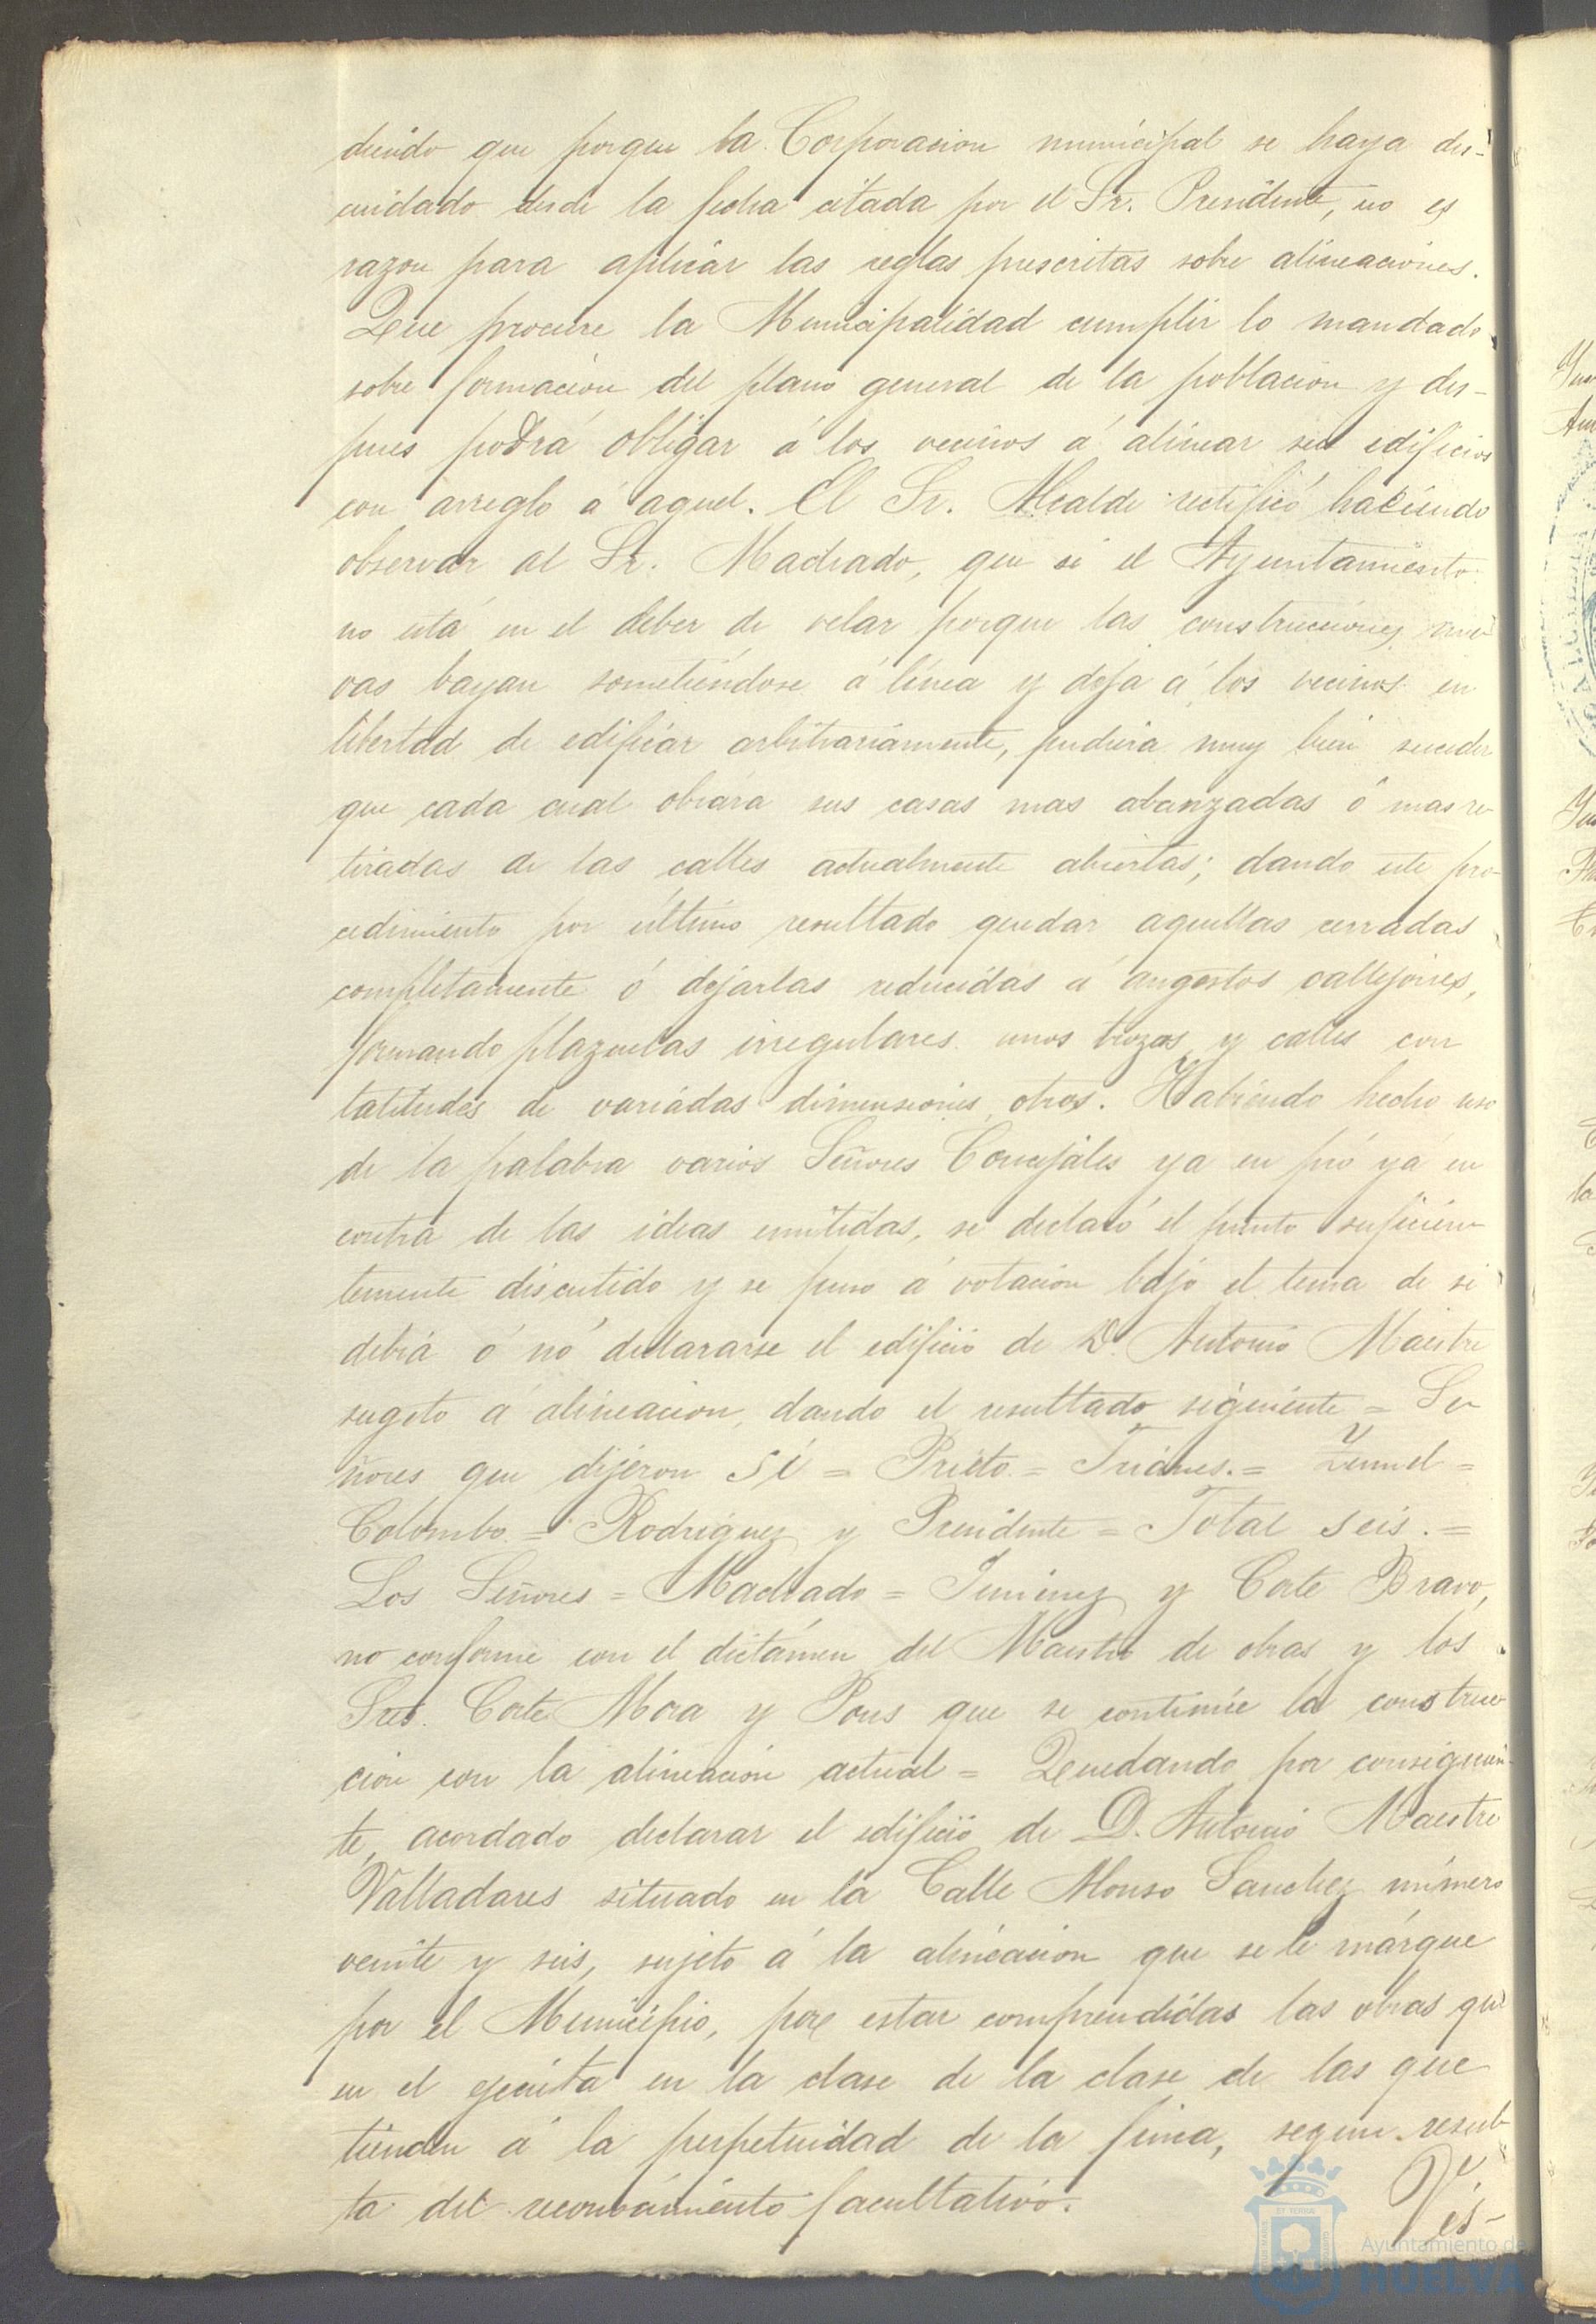 diendo que porque la Corporacion municipal se haya des-
cuidado desde la fecha citada por el Sr. Presidente, no es
razon para aplicar las reglas prescritas sobre alineaciones.
Que procure la Municipalidad cumplir lo mandado
sobre formacion del plano general de la poblacion y des-
pues podrá obligar á los vecinos á alinear sus edificios
con arreglo á aquel. El Sr. Alcalde rectificó haciendo
observar al Sr. Machado, que si el Ayuntamiento
no está en el deber de velar porque las construcciones nue
vas bayan sometiéndose á línea y deja á los vecinos en
libertad de edificar arbitrariamente, pudiera muy bien suceder
que cada cual obrára sus casas mas abanzadas ó mas re
tiradas de las calles actualmente abiertas; dando este pro
cedimiento por último resultado quedar aquellas cerradas
completamente ó dejarlas reducidas á angostos callejones,
formando plazuelas irregulares unos trozos y calles con
latitudes de variadas dimensiones otros. Habiendo hecho uso
de la palabra varios Señores Concejales ya en pró ya en
contra de las ideas emitidas, se declaró el punto suficien
temente discutido y se puso á votacion bajo el tema de si
debia ó nó declararse el edificio de D. Antonio Maestre
sugeto á alineacion, dando el resultado siguiente = Se
ñores que dijeron Sí = Prieto = Trianes. =
Colombo = Rodriguez y Presidente = Total seis. =
Los Señores = Machado = Jimenez y Corte Bravo,
no conforme con el dictámen del Maestro de obras y los
Sres. Corte Mora y Pons que se continúe la construc
cion con la alineacion actual = Quedando por consiguien-
te, acordado declarar el edificio de D. Antonio Maestre
Valladares situado en la Calle Alonso Sanchez número
veinte y seis, sujeto á la alineacion que se le márque
por el Municipio, por estar comprendidas las obras que
en el ejecuta en la clase de la clase de las que
tienden á la perpetuidad de la finca, segun resul-
ta del reconocimiento facultativo.
Ayuntamiento de
HUELVA